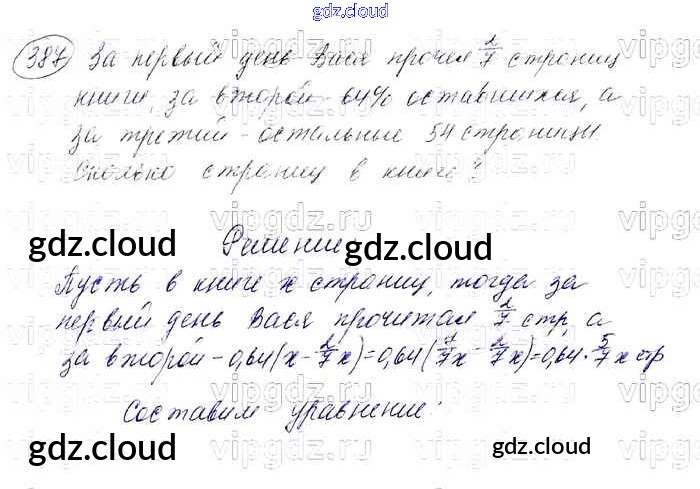 gdz.cloud
387 За первый день Вася прочел 2/7 страниц
книги, за второй - 64% оставшихся, а
за третий - остальные 54 страницы.
Сколько страниц в книге?
gdz.cloud Решение gdz.cloud
Пусть в книге x страниц, тогда за
первый день Вася прочитал 2/7 стр, а
за второй - 0,64(x - 2/7x) = 0,64(7/7x - 2/7x) = 0,64 · 5/7x стр
Составим уравнение:
gdz.cloud gdz.cloud
vipgdz.ru